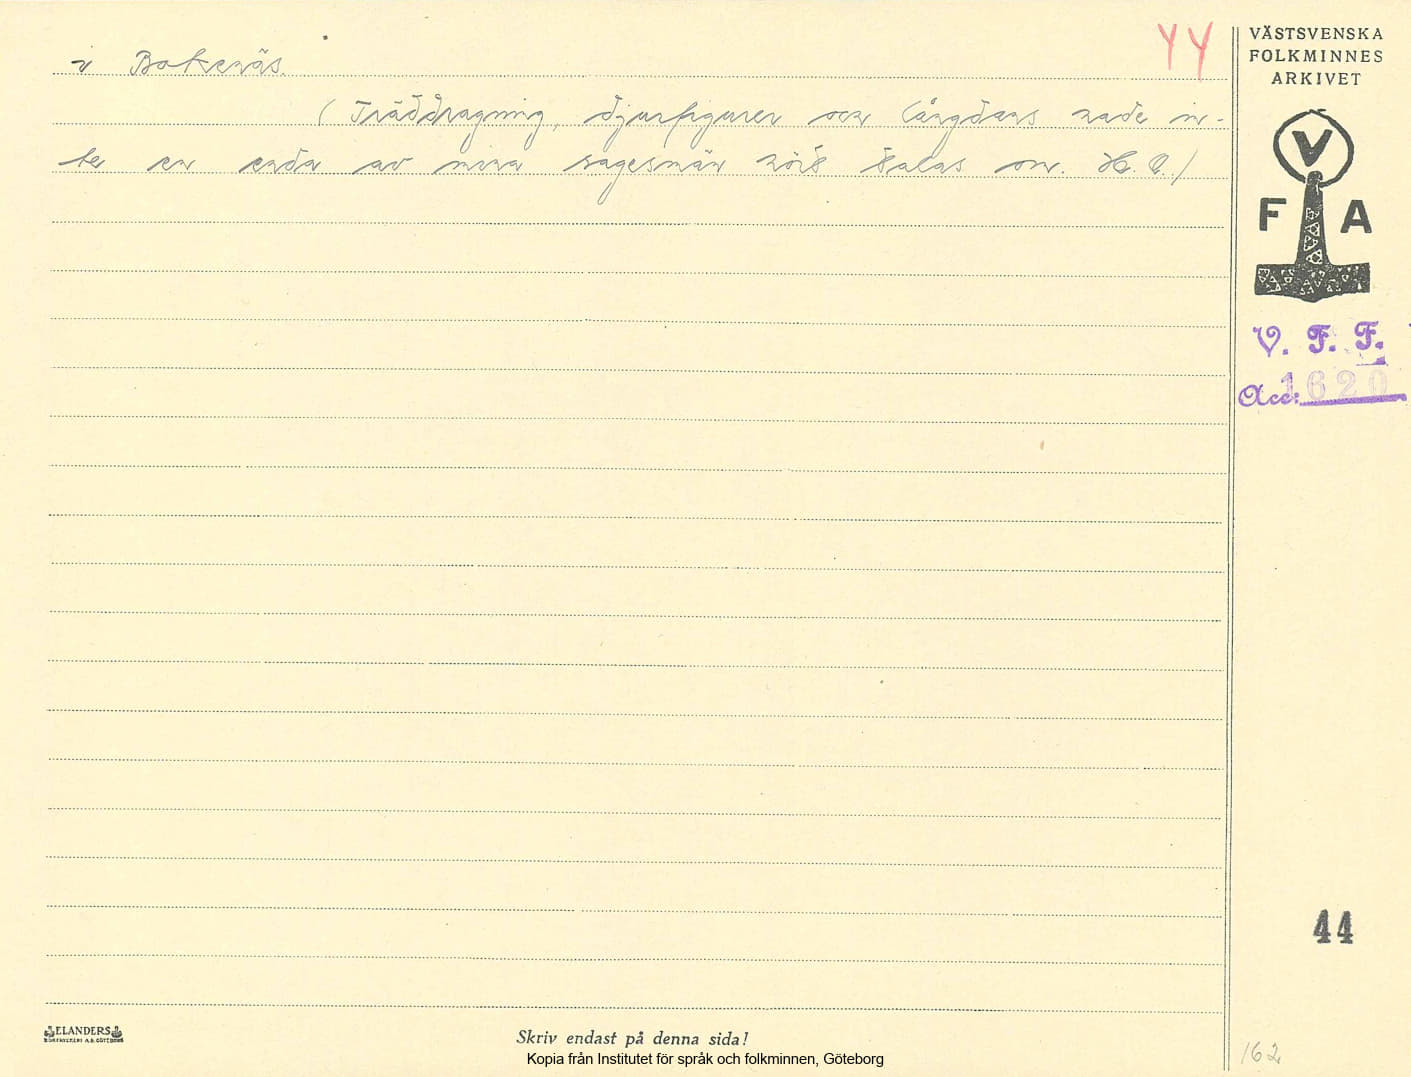 44
i Bokenäs.
(Träddragning, djurfigurer och långdans hade in-
te en enda av mina sagesmän hört talas om. H. C.)
VÄSTSVENSKA
FOLKMINNES
ARKIVET
V
F A
V. F. F.
Acc: 1620
44
162
ELANDERS
BOKTRYCKERI A.B. GÖTEBORG
Skriv endast på denna sida!
Kopia från Institutet för språk och folkminnen, Göteborg